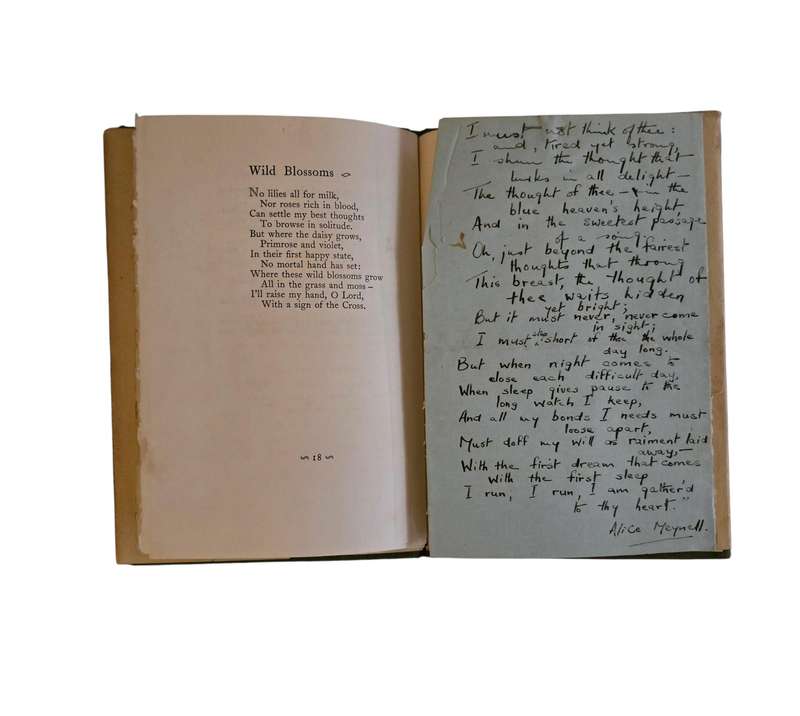 Wild Blossoms
No lilies all for milk,
Nor roses rich in blood,
Can settle my best thoughts
To browse in solitude.
But where the daisy grows,
Primrose and violet,
In their first happy state,
No mortal hand has set:
Where these wild blossoms grow
All in the grass and moss—
I'll raise my hand, O Lord,
With a sign of the Cross.
18
I must not think of thee:
and, tired yet strong,
I shun the thought that
lurks in all delight—
The thought of thee—& in the
blue heaven's height,
And in the sweetest passage
of a song.
Oh, just beyond the fairest
thoughts that throng
This breast, the thought of
thee waits hidden
yet bright;
But it must never, never come
in sight;
I must stop short of thee the whole
day long.
But when night comes to
close each difficult day,
When sleep gives pause to the
long watch I keep,
And all my bonds I needs must
loose apart,
Must doff my will as raiment laid
away,—
With the first dream that comes
with the first sleep
I run, I run, I am gather'd
to thy heart."
Alice Meynell.